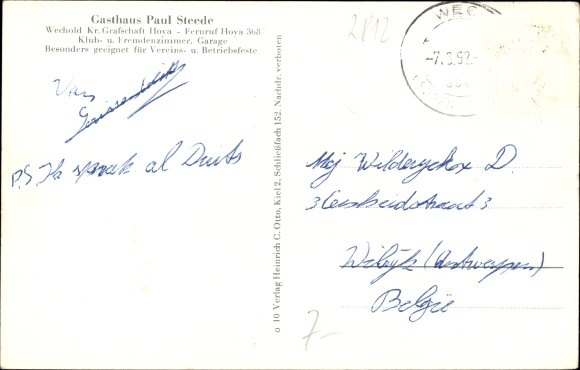 Gasthaus Paul Steede
Wechold Kr. Grafschaft Hoya - Fernruf Hoya 368
Klub- u. Fremdenzimmer, Garage
Besonders geeignet für Vereins- u. Betriebsfeste
2812
WEC
-7.8.52-
Van
P.S Ik sprak al Duits
o 10 Verlag Heinrich C. Otto, Kiel 2, Schließfach 152. Nachdr. verboten
Mej Wilderyckx D.
Wilrijk (Antwerpen)
België
7-